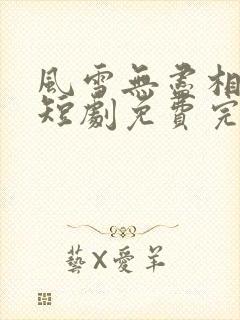 風雪無盡相
短劇免費完
藝X愛羊